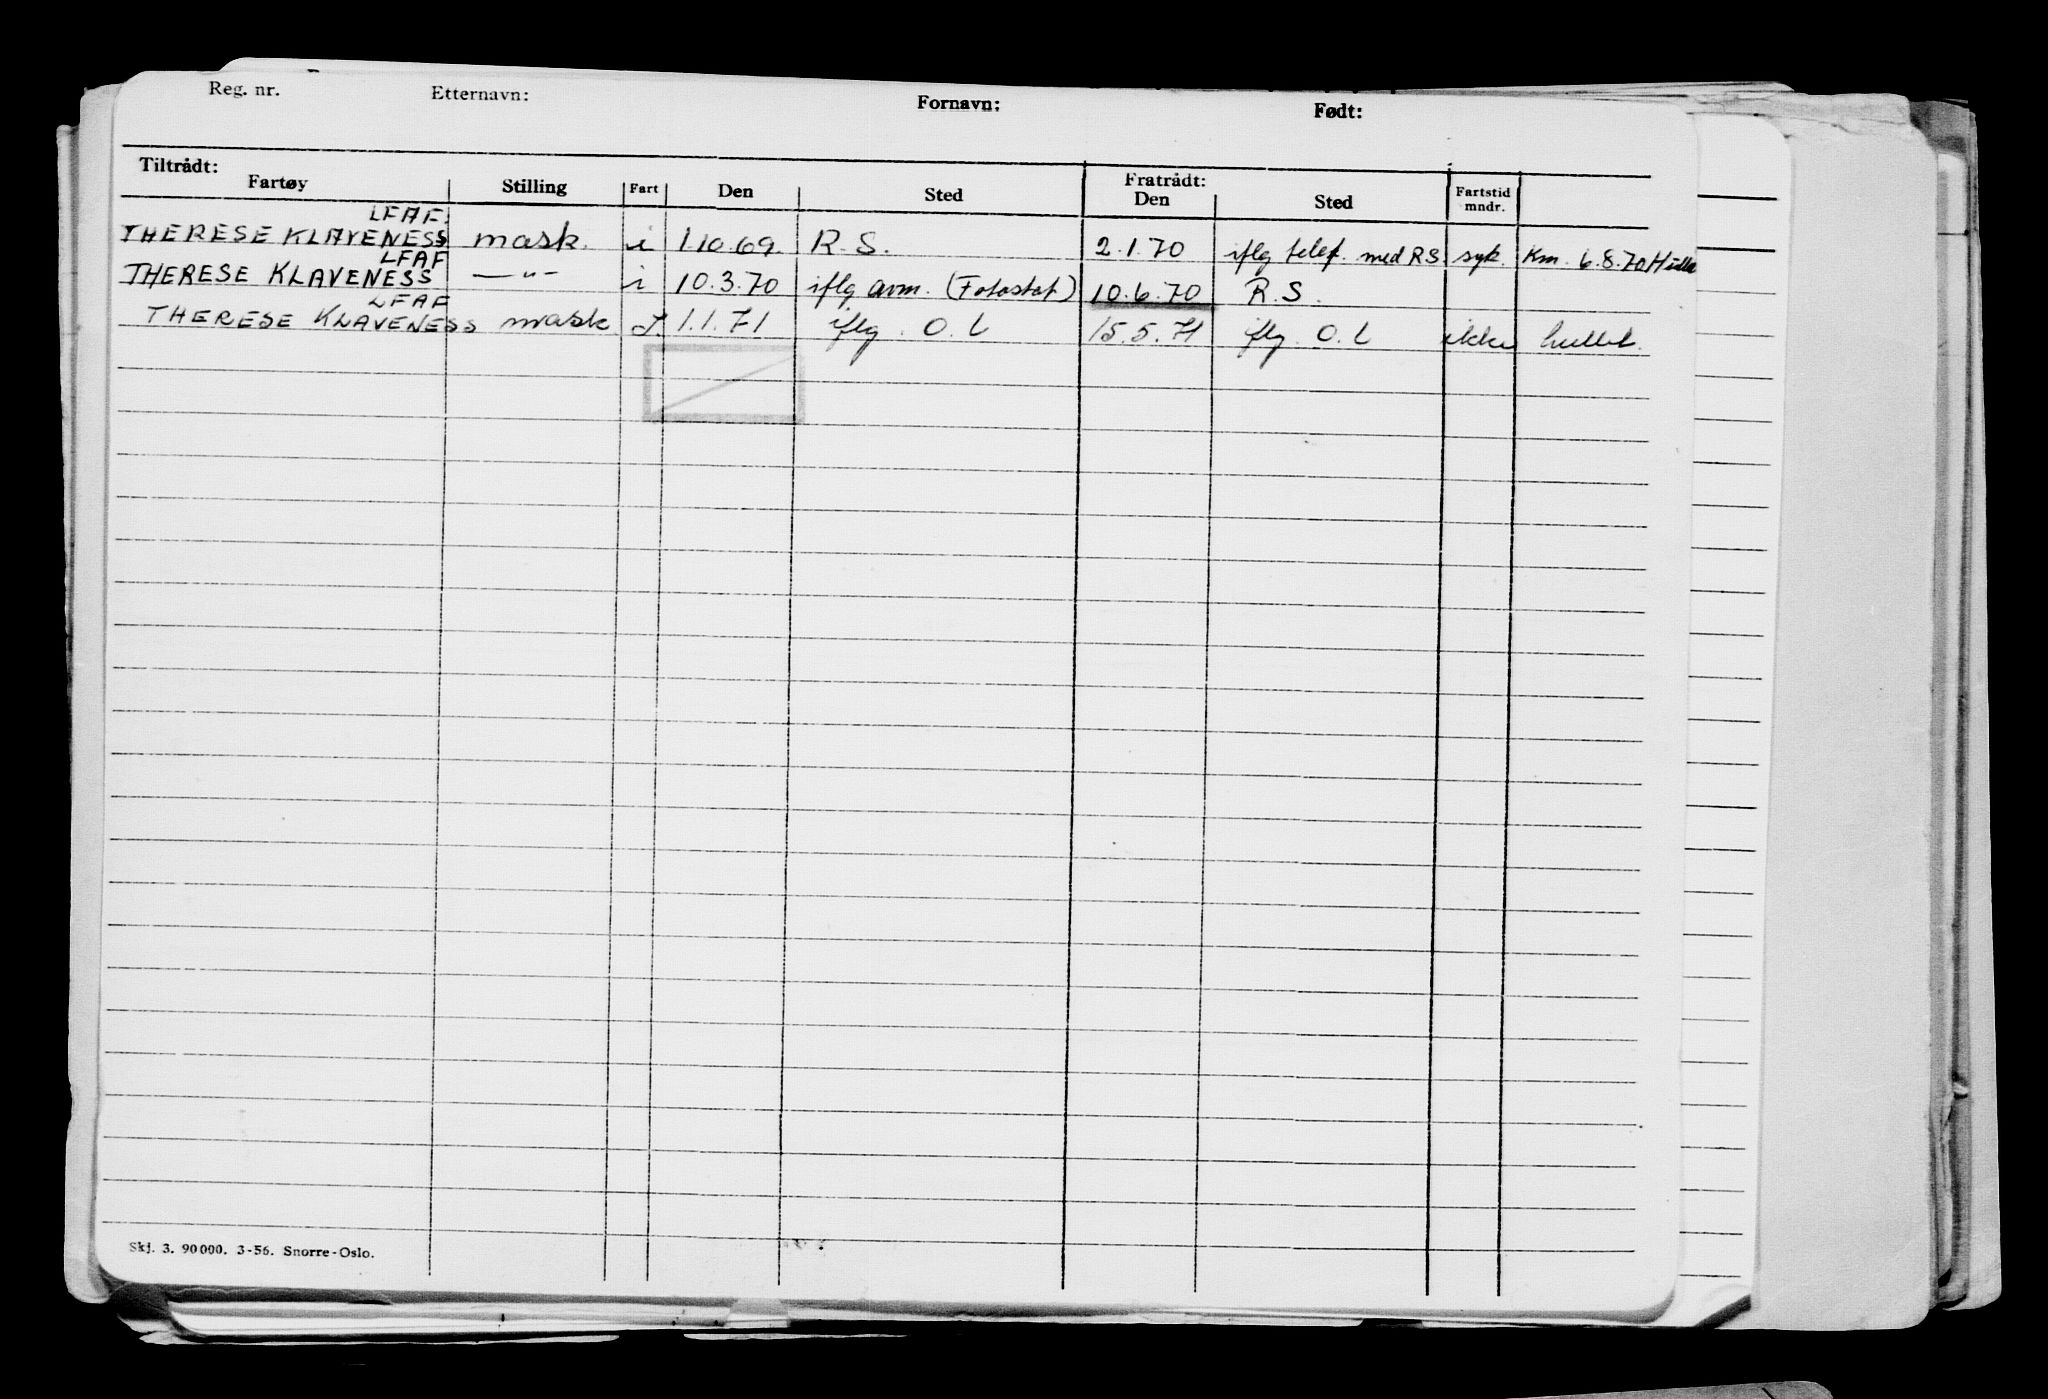 Reg. nr. Etternavn: Fornavn: Født:
Tiltrådt: Fratrådt:
Fartøy Stilling Fart Den Sted Den Sted Fartstid mndr.
LFAF.
THERESE KLAVENESS mask. i 1.10.69. R.S. 2.1.70 iflg telef. med RS. syk. Km. 6.8.70
LFAF
THERESE KLAVENESS —"— i 10.3.70 iflg avm. (Fotostat) 10.6.70 R.S.
LFAF
THERESE KLAVENESS mask 1.1.71 iflg. O.L 15.5.71 iflg. O.L ikke hullet.
Skj. 3. 90000. 3-56. Snorre-Oslo.